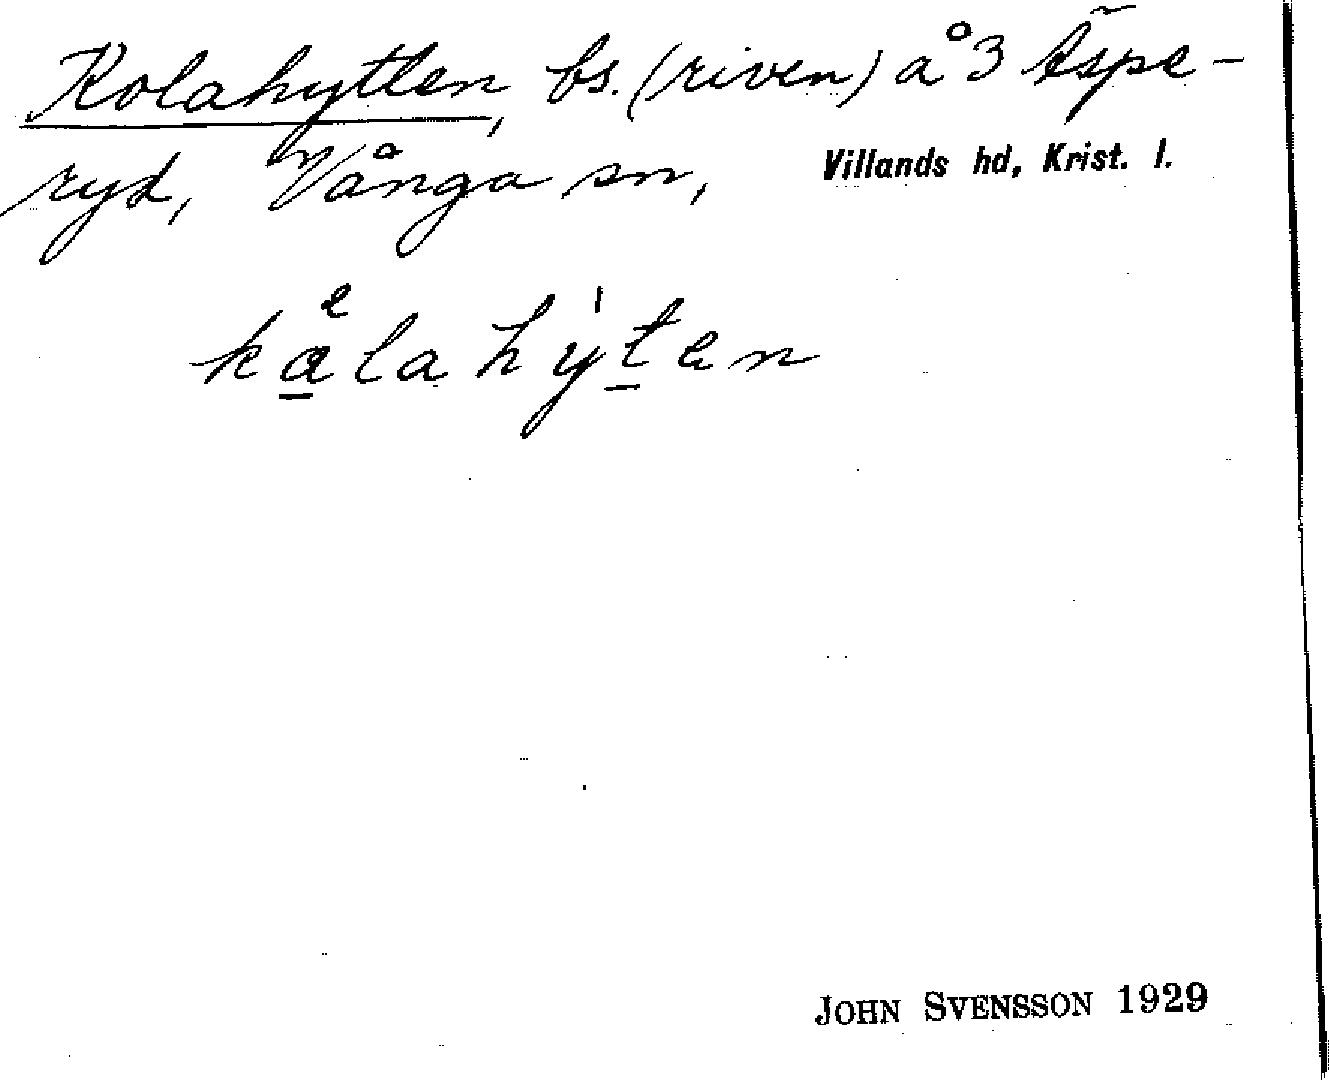 Kolahytten, bs. (riven) å 3 Äspe-
ryd, Vånga sn, Villands hd, Krist. l.
kålahýten
JOHN SVENSSON 1929